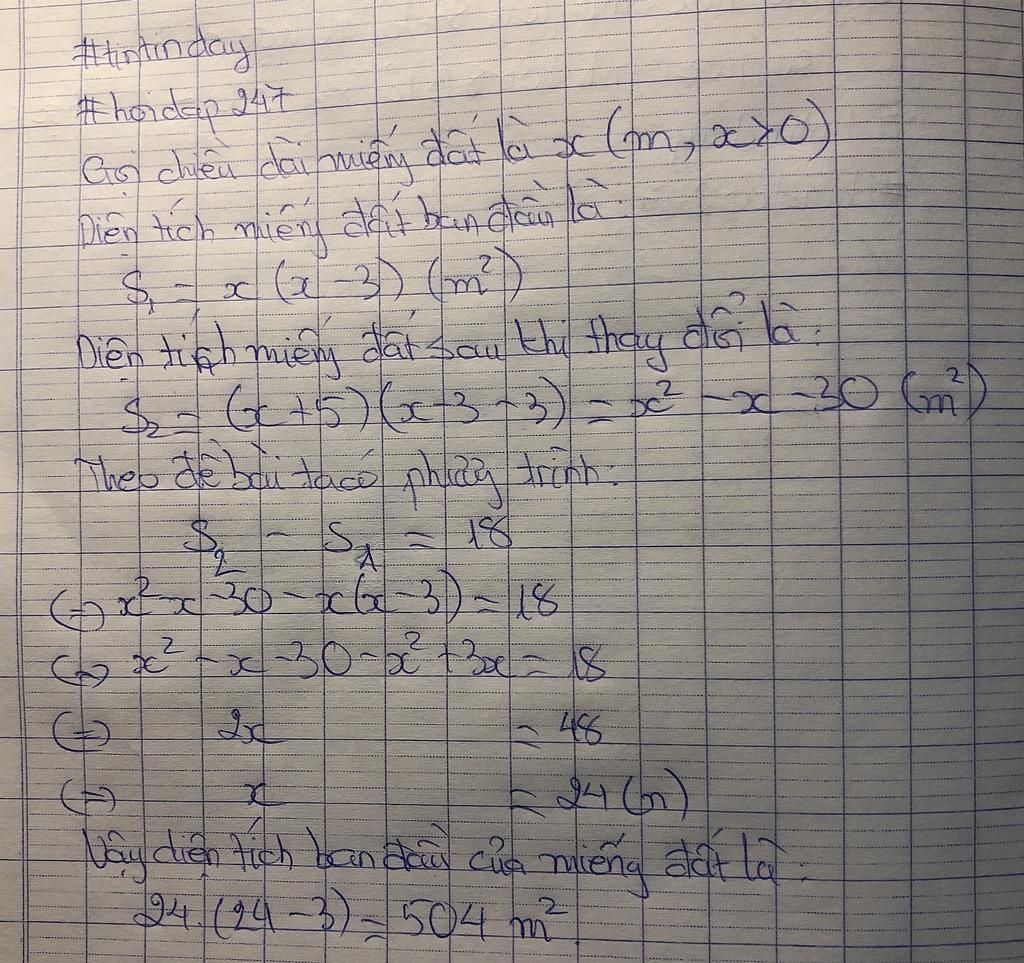 #tintinday
#hoidap247
Gọi chiều dài miếng đất là x (m, x>0)
Diện tích miếng đất ban đầu là:
S₁ = x (x - 3) (m²)
Diện tích miếng đất sau khi thay đổi là:
S₂ = (x+5)(x-3-3) = x² - x - 30 (m²)
Theo đề bài ta có phương trình:
S₂ - S₁ = 18
(=) x² - x - 30 - x(x-3) = 18
(=) x² - x - 30 - x² + 3x = 18
(=) 2x = 48
(=) x = 24 (m)
Vậy diện tích ban đầu của miếng đất là:
24.(24 - 3) = 504 m²